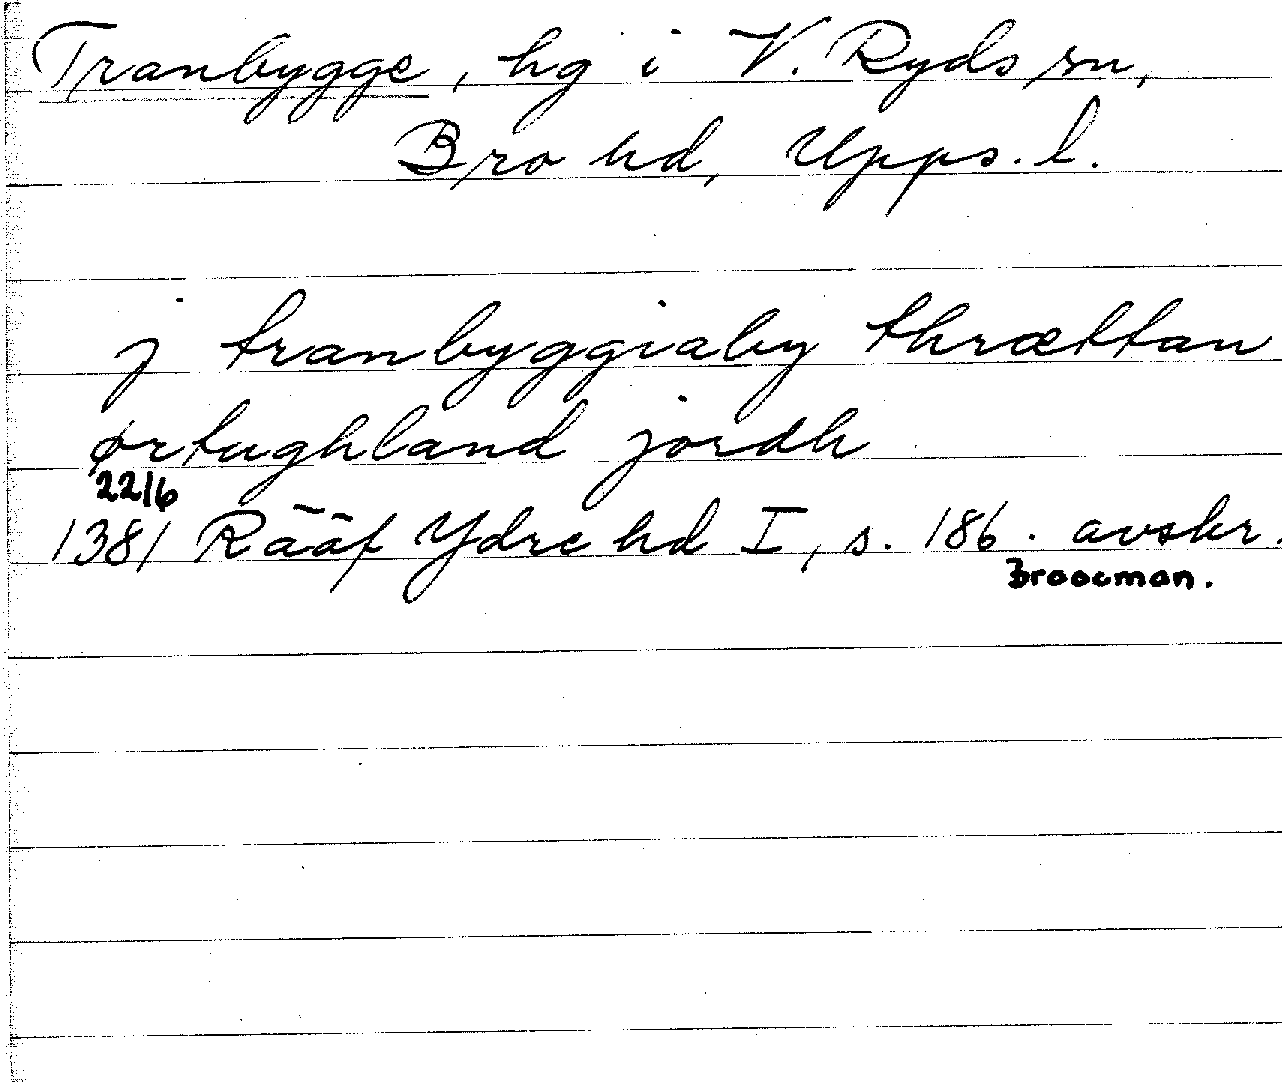 Tranbygge, hg i V. Ryds sn,
Bro hd, Upps. l.
j tranbyggiaby thrættan
ørtughland jordh
22/6
1381 Rääf Ydre hd I, s. 186. avskr.
Broocman.